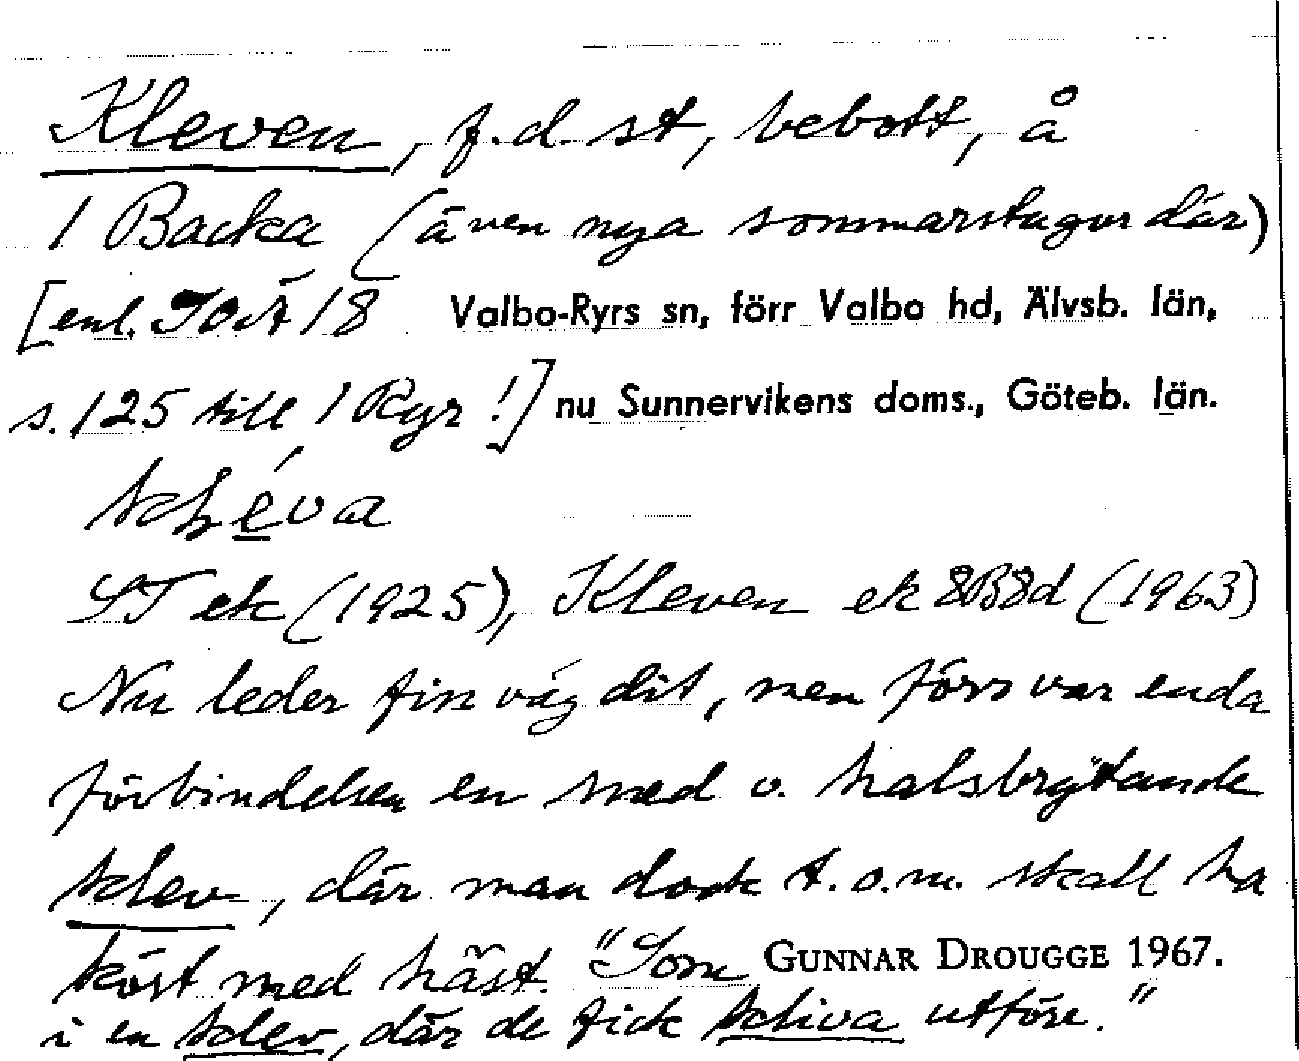 Kleven, f.d. st, bebott, å
1 Backa (även nya sommarstugor där)
[enl. SOÄ 18 Valbo-Ryrs sn, förr Valbo hd, Älvsb. län,
s. 125 till 1 Ryr!] nu Sunnervikens doms., Göteb. län.
ST ek (1925), Kleven ek 8B8d (1963)
Nu leder fin väg dit, men förr var enda
förbindelsen en med v. halsbrytande
klev, där man dock t.o.m. skall ha
kört med häst. "Som GUNNAR DROUGGE 1967.
i en klev, där de fick kliva utför."